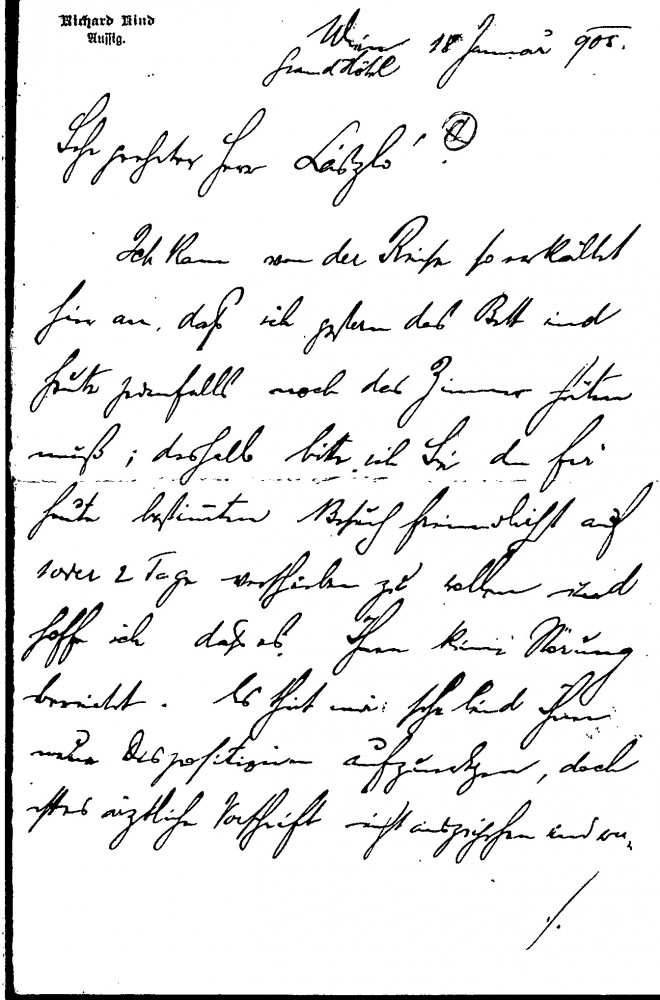 Richard Kind
Aussig.
Wien 18 Januar 905.
Grand Hôtel
Sehr geehrter Herr László!
Ich kam von der Reise so erkältet
hier an, daß ich gestern das Bett und
heute jedenfalls noch das Zimmer hüten
muß; deshalb bitte ich Sie den für
heute bestimmten Besuch freundlichst auf
1 oder 2 Tage verschieben zu wollen und
hoffe ich daß es Ihnen keine Störung
bereitet. Es thut mir sehr leid Ihnen
neue Dispositionen, doch
ist es ärztliche Vorschrift nicht auszugehen und
./.